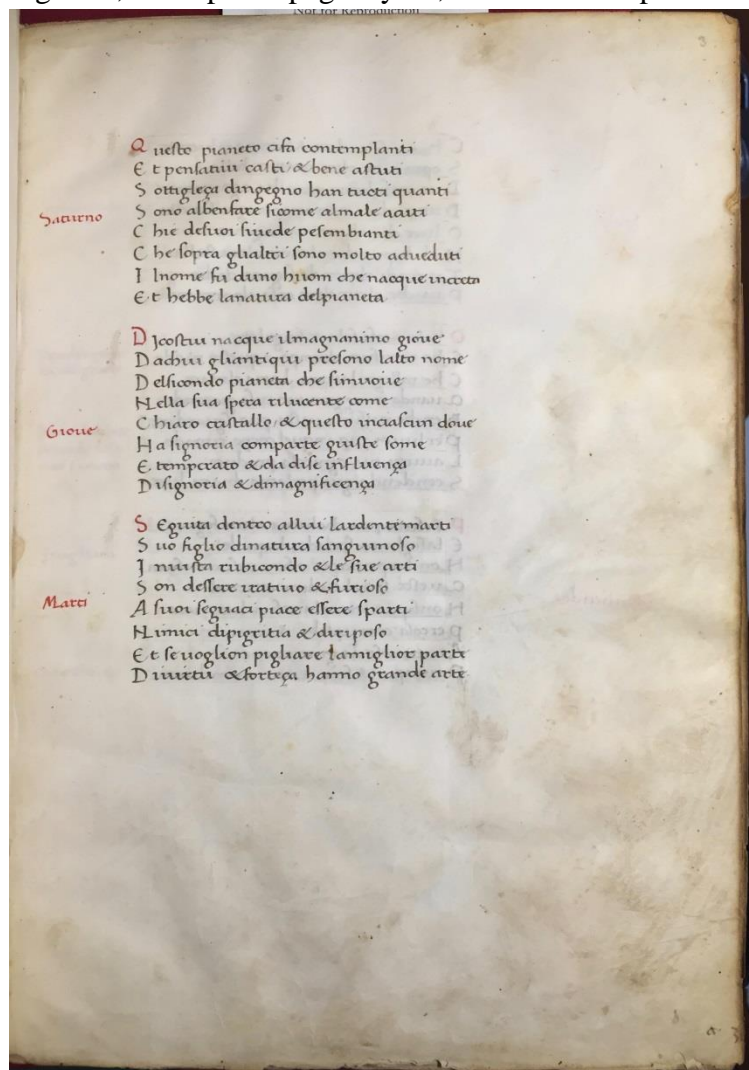 Not for Reproduction
3
Q uesto pianeto cifa contemplanti
E t pensatiui casti & bene astuti
S ottigleça dingegno han tucti quanti
Saturno
S ono albenfare sicome almale aaiti
C hie desuoi siuede pesembianti
C he sopra glialtri sono molto adueduti
I lnome fu duno huom che nacque increta
E t hebbe lanatura delpianeta
D Jcostui nacque ilmagnanimo gioue
D achui gliantiqui presono lalto nome
D elsicondo pianeta che simuoue
N ella sua spera rilucente come
Gioue
C hiaro cristallo & questo inciascun doue
H a signoria comparte giuste some
E temperato & da dise influença
D isignoria & dimagnificença
S Eguita dentro allui lardente marti
S uo figlio dinatura sanguinoso
I nuista rubicondo & le sue arti
S on dessere iratiuo & furioso
Marti
A suoi seguaci piace essere sparti
N imici dipigritia & diriposo
E t se uoglion pigliare lamiglior parte
D iuirtu & forteça hanno grande arte